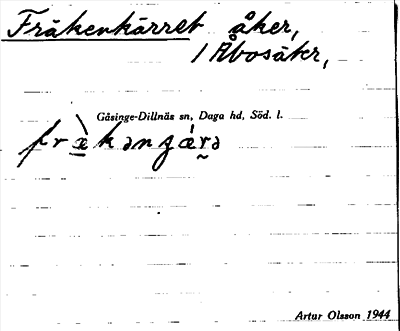 Fräkenkärret åker,
/ Åbosäter,
Gåsinge-Dillnäs sn, Daga hd, Söd. l.
Artur Olsson 1944